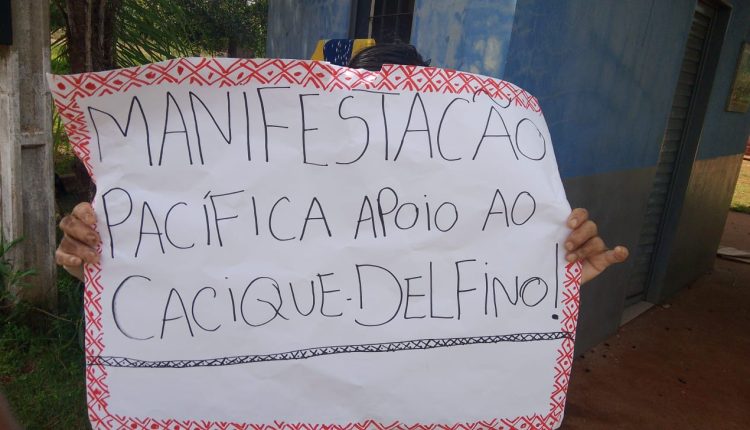 MANIFESTACÃO
PACÍFICA APOIO AO
CACIQUE-DELFINO!